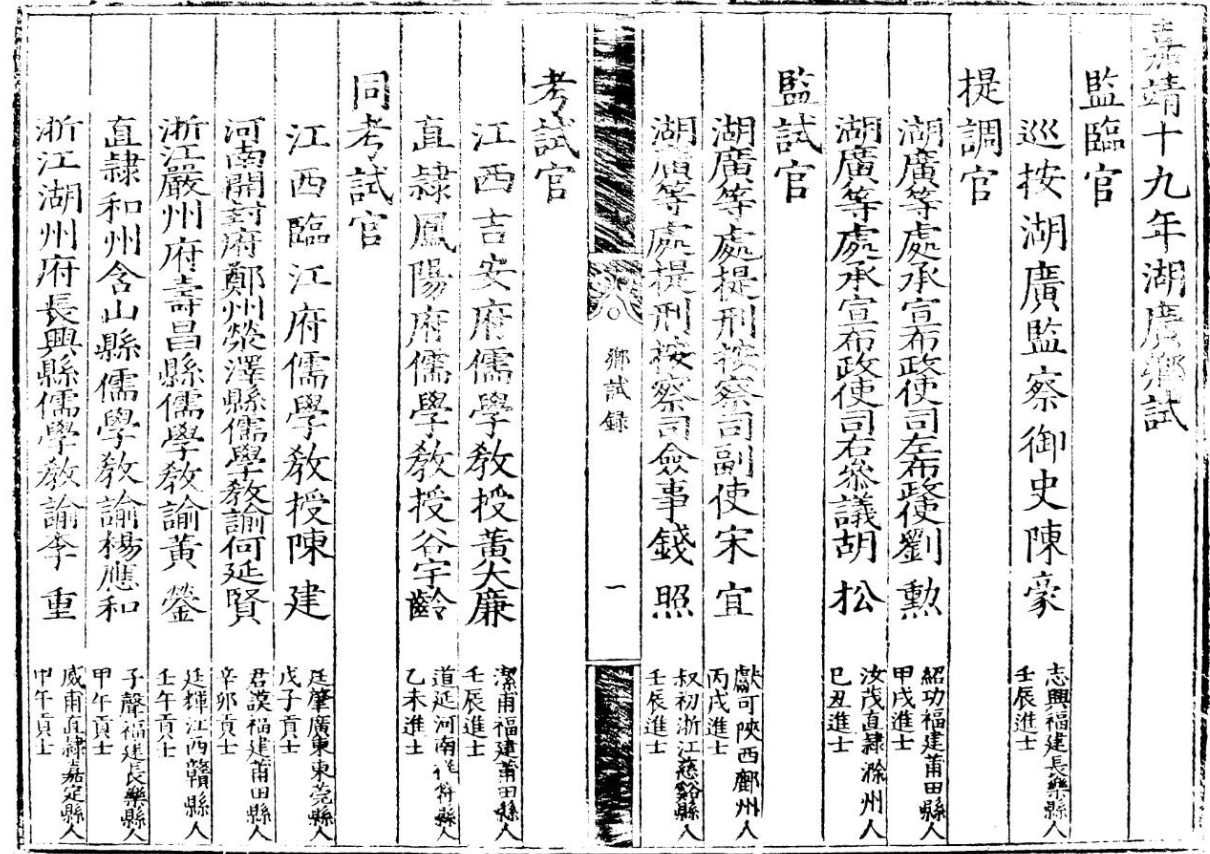 嘉靖十九年湖廣鄉試
監臨官
巡按湖廣監察御史陳豪
志興福建長樂縣人
壬辰進士
提調官
湖廣等處承宣布政使司左布政使劉勲
紹功福建莆田縣人
甲戌進士
湖廣等處承宣布政使司右叅議胡松
汝茂直隷滁州人
己丑進士
監試官
湖廣等處提刑按察司副使宋宜
獻可陝西鄜州人
丙戌進士
湖廣等處提刑按察司僉事錢照
叔初浙江慈谿縣人
壬辰進士
鄉試錄
一
考試官
江西吉安府儒學教授黃大廉
潔甫福建莆田縣人
壬辰進士
直隷鳳陽府儒學教授谷宇齡
道延河南祥符縣人
乙未進士
同考試官
江西臨江府儒學教授陳建
廷肇廣東東莞縣人
戊子貢士
河南開封府鄭州滎澤縣儒學教諭何廷賢
君謨福建莆田縣人
辛卯貢士
浙江嚴州府壽昌縣儒學教諭黃鎣
廷輝江西贛縣人
壬午貢士
直隷和州含山縣儒學教諭楊應和
子聲福建長樂縣人
甲午貢士
浙江湖州府長興縣儒學教諭李重
威甫直隷嘉定縣人
甲午貢士